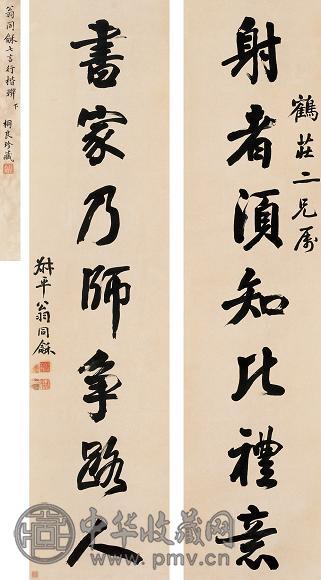 鶴莊二兄屬
射者須知比禮意
書家乃師争路人
叔平翁同龢
翁同龢七言行楷聯
下
桐良珍藏
中华收藏网
www.pmv.cn